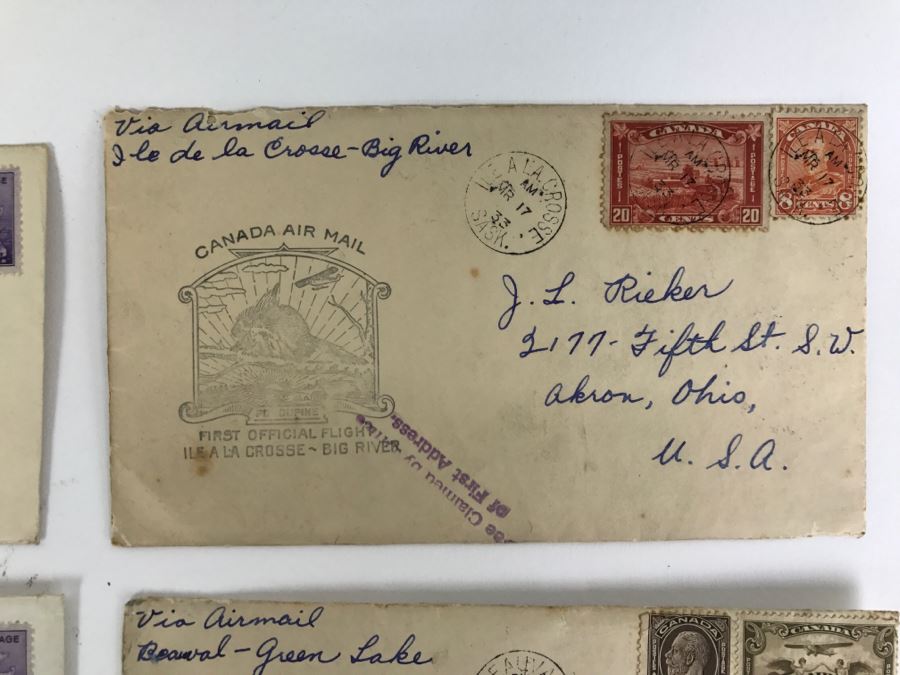 Via Airmail
Ile de la Crosse-Big River
ILE A LA CROSSE
AM
17
33
SASK.
CANADA
POSTES POSTAGE
20 CENTS 20
CANADA
8 CENTS 8
CANADA AIR MAIL
PORCUPINE
FIRST OFFICIAL FLIGHT
ILE A LA CROSSE ~ BIG RIVER
J. L. Rieker
2177- Fifth St. S.W.
Akron, Ohio,
U. S. A.
Fee Claimed by Office
of First Address.
Via Airmail
Beauval - Green Lake
CANADA
CANADA